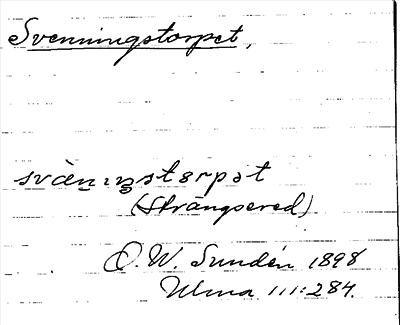 Svenningstorpet,
svὰn̲ıŋstɵrpət
(Strängsered)
O.W. Sundén 1898
Ulma 111:284.